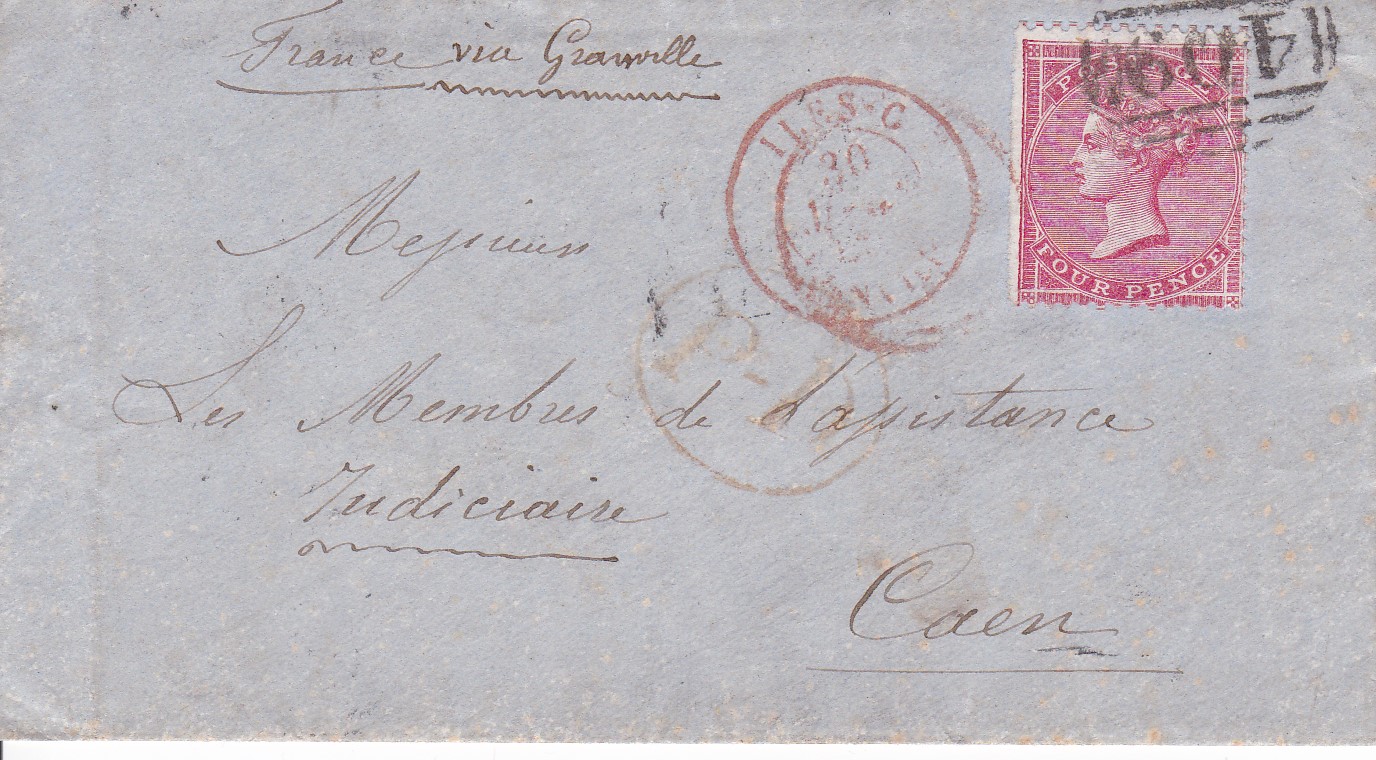 France via Granville
POSTAGE
ILES-C
30
FOUR PENCE
Messieurs
P.D.
Les Membres de L'assistance
Judiciaire
Caen